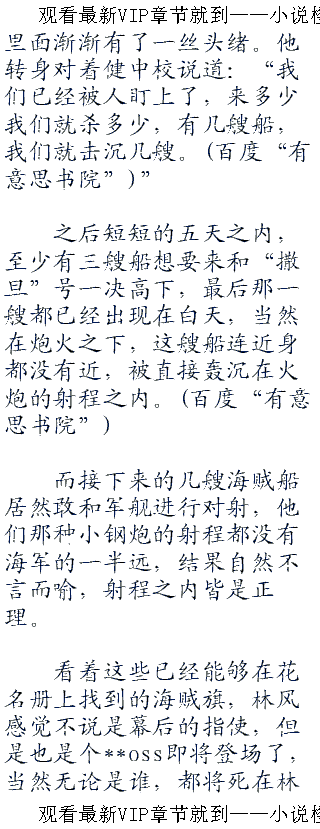 观看最新VIP章节就到——小说
里面渐渐有了一丝头绪。他
转身对着健中校说道：“我
们已经被人盯上了，来多少
我们就杀多少，有几艘船，
我们就击沉几艘。(百度“有
意思书院”)”
之后短短的五天之内，
至少有三艘船想要来和“撒
旦”号一决高下，最后那一
艘都已经出现在白天，当然
在炮火之下，这艘船连近身
都没有近，被直接轰沉在火
炮的射程之内。(百度“有意
思书院”)
而接下来的几艘海贼船
居然敢和军舰进行对射，他
们那种小钢炮的射程都没有
海军的一半远，结果自然不
言而喻，射程之内皆是正
理。
看着这些已经能够在花
名册上找到的海贼旗，林风
感觉不说是幕后的指使，但
是也是个**oss即将登场了，
当然无论是谁，都将死在林
观看最新VIP章节就到——小说